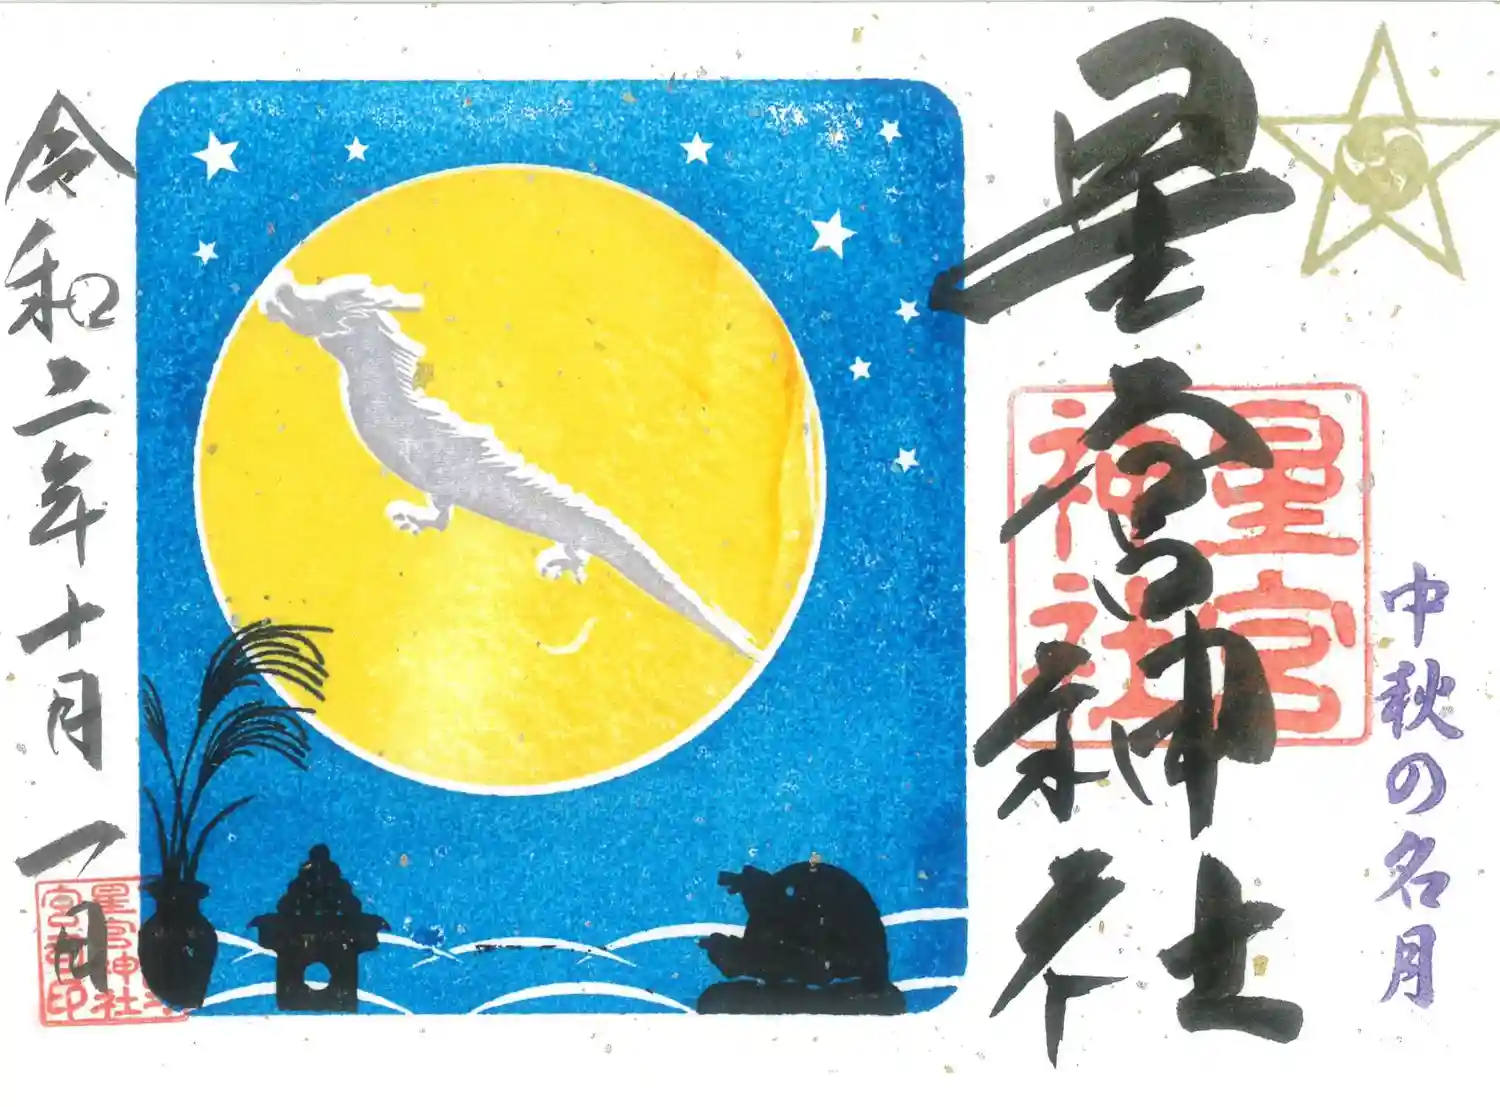 中秋の名月
星宮神社
星宮
神社
令和二年十月一日
星宮神社
宮司印